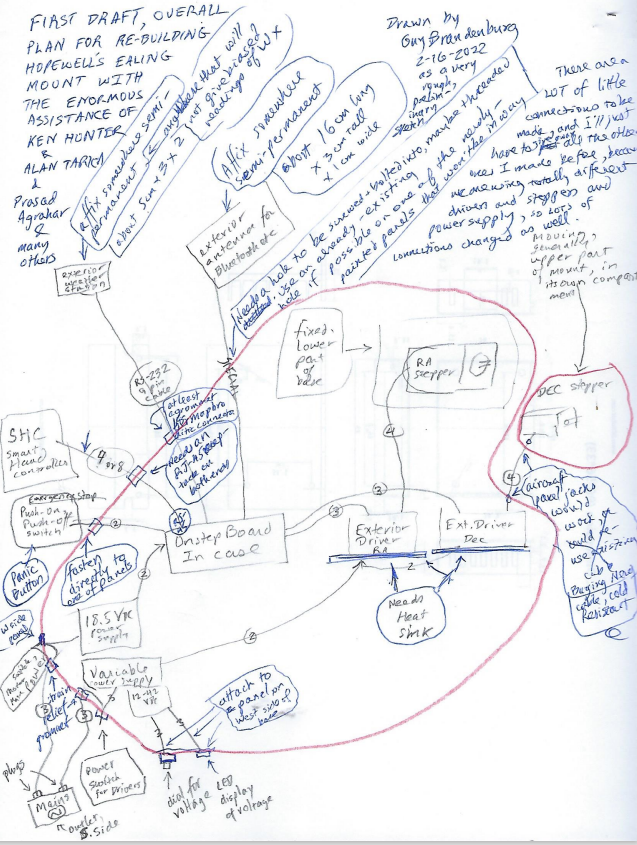 FIRST DRAFT, OVERALL
PLAN FOR RE-BUILDING
HOPEWELL'S EALING
MOUNT WITH
THE ENORMOUS
ASSISTANCE OF
KEN HUNTER
&
ALAN TARICA
&
Prasad
Agrahar
&
many
others
affix somewhere semi-
permanent & anywhere that will
not give biased
readings of WX
about 5cm x 3 x 2
Affix somewhere
semi-permanent
about 16 cm long
x 3 cm tall
x 1 cm wide
Drawn by
Guy Brandenburg
2-16-2022
as a very
rough,
prelim-
inary
sketch
There are a
LOT of little
connections to be
made, and I'll just
have to all the other
ones I made before, because
we are using totally different
drivers and steppers and
power supply, so LOTS of
connections changed as well.
Needs a hole to be screwed, bolted into, maybe threaded
use an already-existing
hole if possible or one of the newly-
painted panels that won't be in way
Moving,
generally
upper part
of mount, in
its own compart
ment
exterior
weather
station
exterior
antenna for
Bluetooth etc
RS-232
9 pin
cable
fixed,
lower
part
of
base
RA
stepper
DEC stepper
at least
a grommet
Needs an
RJ-45 recep-
tacle on
both ends
SHC
smart
Hand
controller
4 or 8
4
4
Emergency Stop
Push-on
Push-off
switch
2
Panic
Button
fasten
directly to
one of panels
Onstep Board
In case
3
3
Exterior
Driver
RA
Ext. Driver
Dec
2
Needs
Heat
sink
aircraft
panel jacks
would
work, or
could re-
use existing
cable
cable, cold
resistant
W side
panel
18.5 VDC
power
supply
2
2
Variable
power supply
12-42
VDC
attach to
panel on
west side of
base
strain
relief
grommet
3
3
plugs
Mains
outlet,
S. side
power
switch
for Drivers
dial for
voltage
LED
display
of voltage